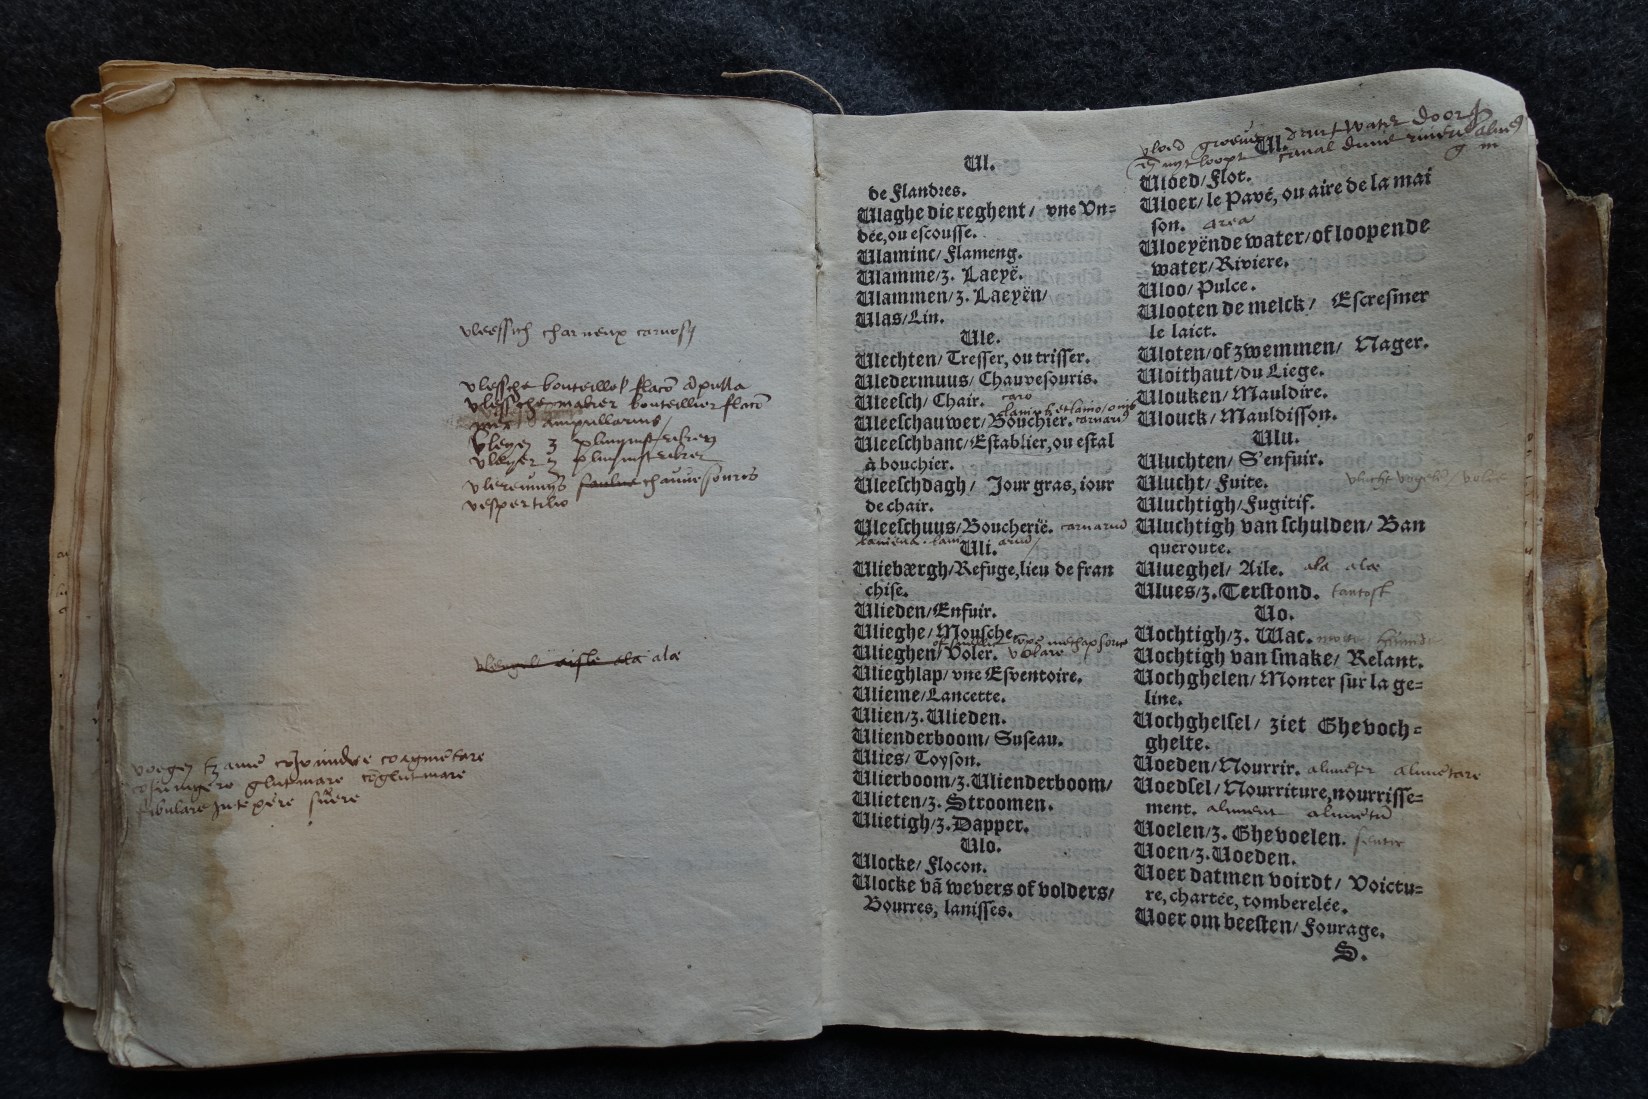 vleessich charneux carnosq
vlessche bouteille flacō āpulla
vlesschemaker bouteillier flacō
ampullarius
vleyen z pluymstricken
vleyer z pluymstricker
vleremuys chauuesouris
vespertilio
vleugel aisle ala alæ
voegen tzame coagmētare
glutinare cōglutinare
Ul.
de Flandres.
Ulaghe die reghent / vne Un=
dée, ou escousse.
Ulaminc/ Flameng.
Ulamme/z. Laeyë.
Ulammen/z. Laeyën/
Ulas/Lin.
Ule.
Ulechten/ Tresser, ou trisser.
Uledermuus/ Chauvesouris.
Uleesch/ Chair. caro
Uleeschauwer/ Bouchier. carnariꝰ
Uleeschbanc/Establier, ou estal
à bouchier.
Uleeschdagh/ Jour gras, iour
de chair.
Uleeschuus/Boucherië. carnariū
Uli.
Uliebærgh/Refuge, lieu de fran
chise.
Ulieden/Enfuir.
Ulieghe/ Mousche.
Ulieghen/ Voler. volare
Ulieghlap/ vne Esventoire.
Ulieme/Lancette.
Ulien/z. Ulieden.
Ulienderboom/ Suseau.
Ulies/ Toyson.
Ulierboom/z. Ulienderboom/
Ulieten/z. Stroomen.
Ulietigh/z. Dapper.
Ulo.
Ulocke/ Flocon.
Ulocke vā wevers of volders/
Bourres, lanisses.
vloed water door
loopt canal
Ul.
Uloed/Flot.
Uloer/ le Pavé, ou aire de la mai
son. area
Uloeyënde water/of loopende
water/Riviere.
Uloo/ Pulce.
Ulooten de melck/ Escresmer
le laict.
Uloten/of zwemmen/ Nager.
Uloithaut/du Liege.
Ulouken/ Mauldire.
Ulouck/ Mauldisson.
Ulu.
Uluchten/ S'enfuir.
Ulucht/ Fuite. vlucht
Uluchtigh/Fugitif.
Uluchtigh van schulden/ Ban
queroute.
Ulueghel/ Aile. ala alæ
Ulues/z. Terstond. tantost
Uo.
Uochtigh/z. Wac.
Uochtigh van smake/ Relant.
Uochghelen/ Monter sur la ge=
line.
Uochghelsel/ ziet Ghevoch=
ghelte.
Uoeden/Nourrir. alimēter alimētare
Uoedsel/ Nourriture, nourrisse=
ment. aliment alimētū
Uoelen/z. Ghevoelen. sentir
Uoen/z. Uoeden.
Uoer datmen voirdt/ Voictu=
re, chartée, tomberelée.
Uoer om beesten/ Fourage.
S.